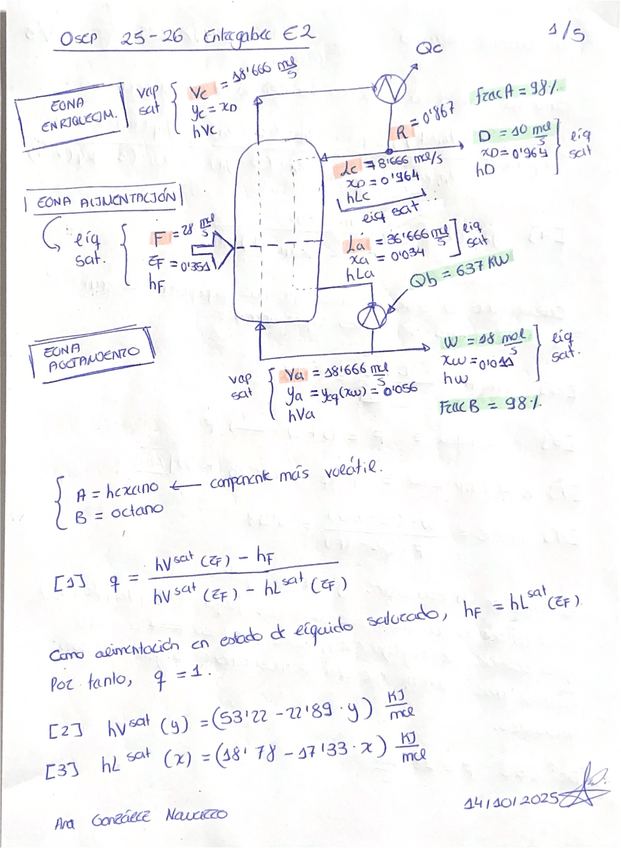 Oscp 25-26 Entregable E2
1/5
Qc
ZONA ENRIQUECIM.
vap sat
Vc = 18'666 mol/s
yc = xD
hVc
R = 0'867
Frac A = 98%
D = 10 mol/s
xD = 0'964
hD
líq sat
Lc = 8'666 mol/s
xD = 0'964
hLc
líq sat
ZONA ALIMENTACIÓN
líq sat.
F = 28 mol/s
zF = 0'351
hF
La = 36'666 mol/s
xa = 0'034
hLa
líq sat
Qb = 637 KW
ZONA AGOTAMIENTO
vap sat
Va = 18'666 mol/s
ya = yeq(xw) = 0'056
hVa
W = 18 mol/s
xw = 0'011
hw
líq sat.
Frac B = 98%
A = hexano ← componente más volátil.
B = octano
[1] q = (hV^sat (zF) - hF) / (hV^sat (zF) - hL^sat (zF))
Como alimentación en estado de líquido saturado, hF = hL^sat (zF)
Por tanto, q = 1.
[2] hV^sat (y) = (53'22 - 22'89 · y) KJ/mol
[3] hL^sat (x) = (18'78 - 17'33 · x) KJ/mol
Ana González Navarro
14/10/2025